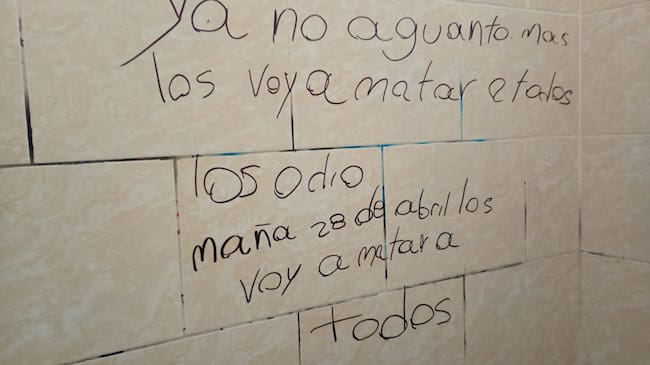 ya no aguanto mas
los voy a matar a todos
los odio
maña 28 de abril los
voy a matar a
todos